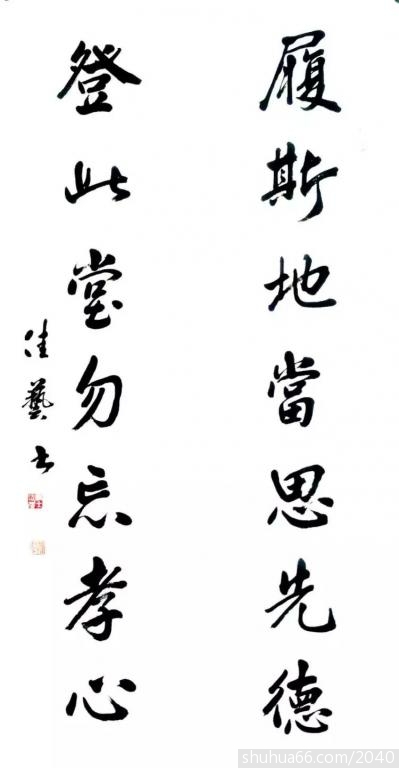 履斯地當思先德
登此堂勿忘孝心
佳藝书
shuhua66.com/2040